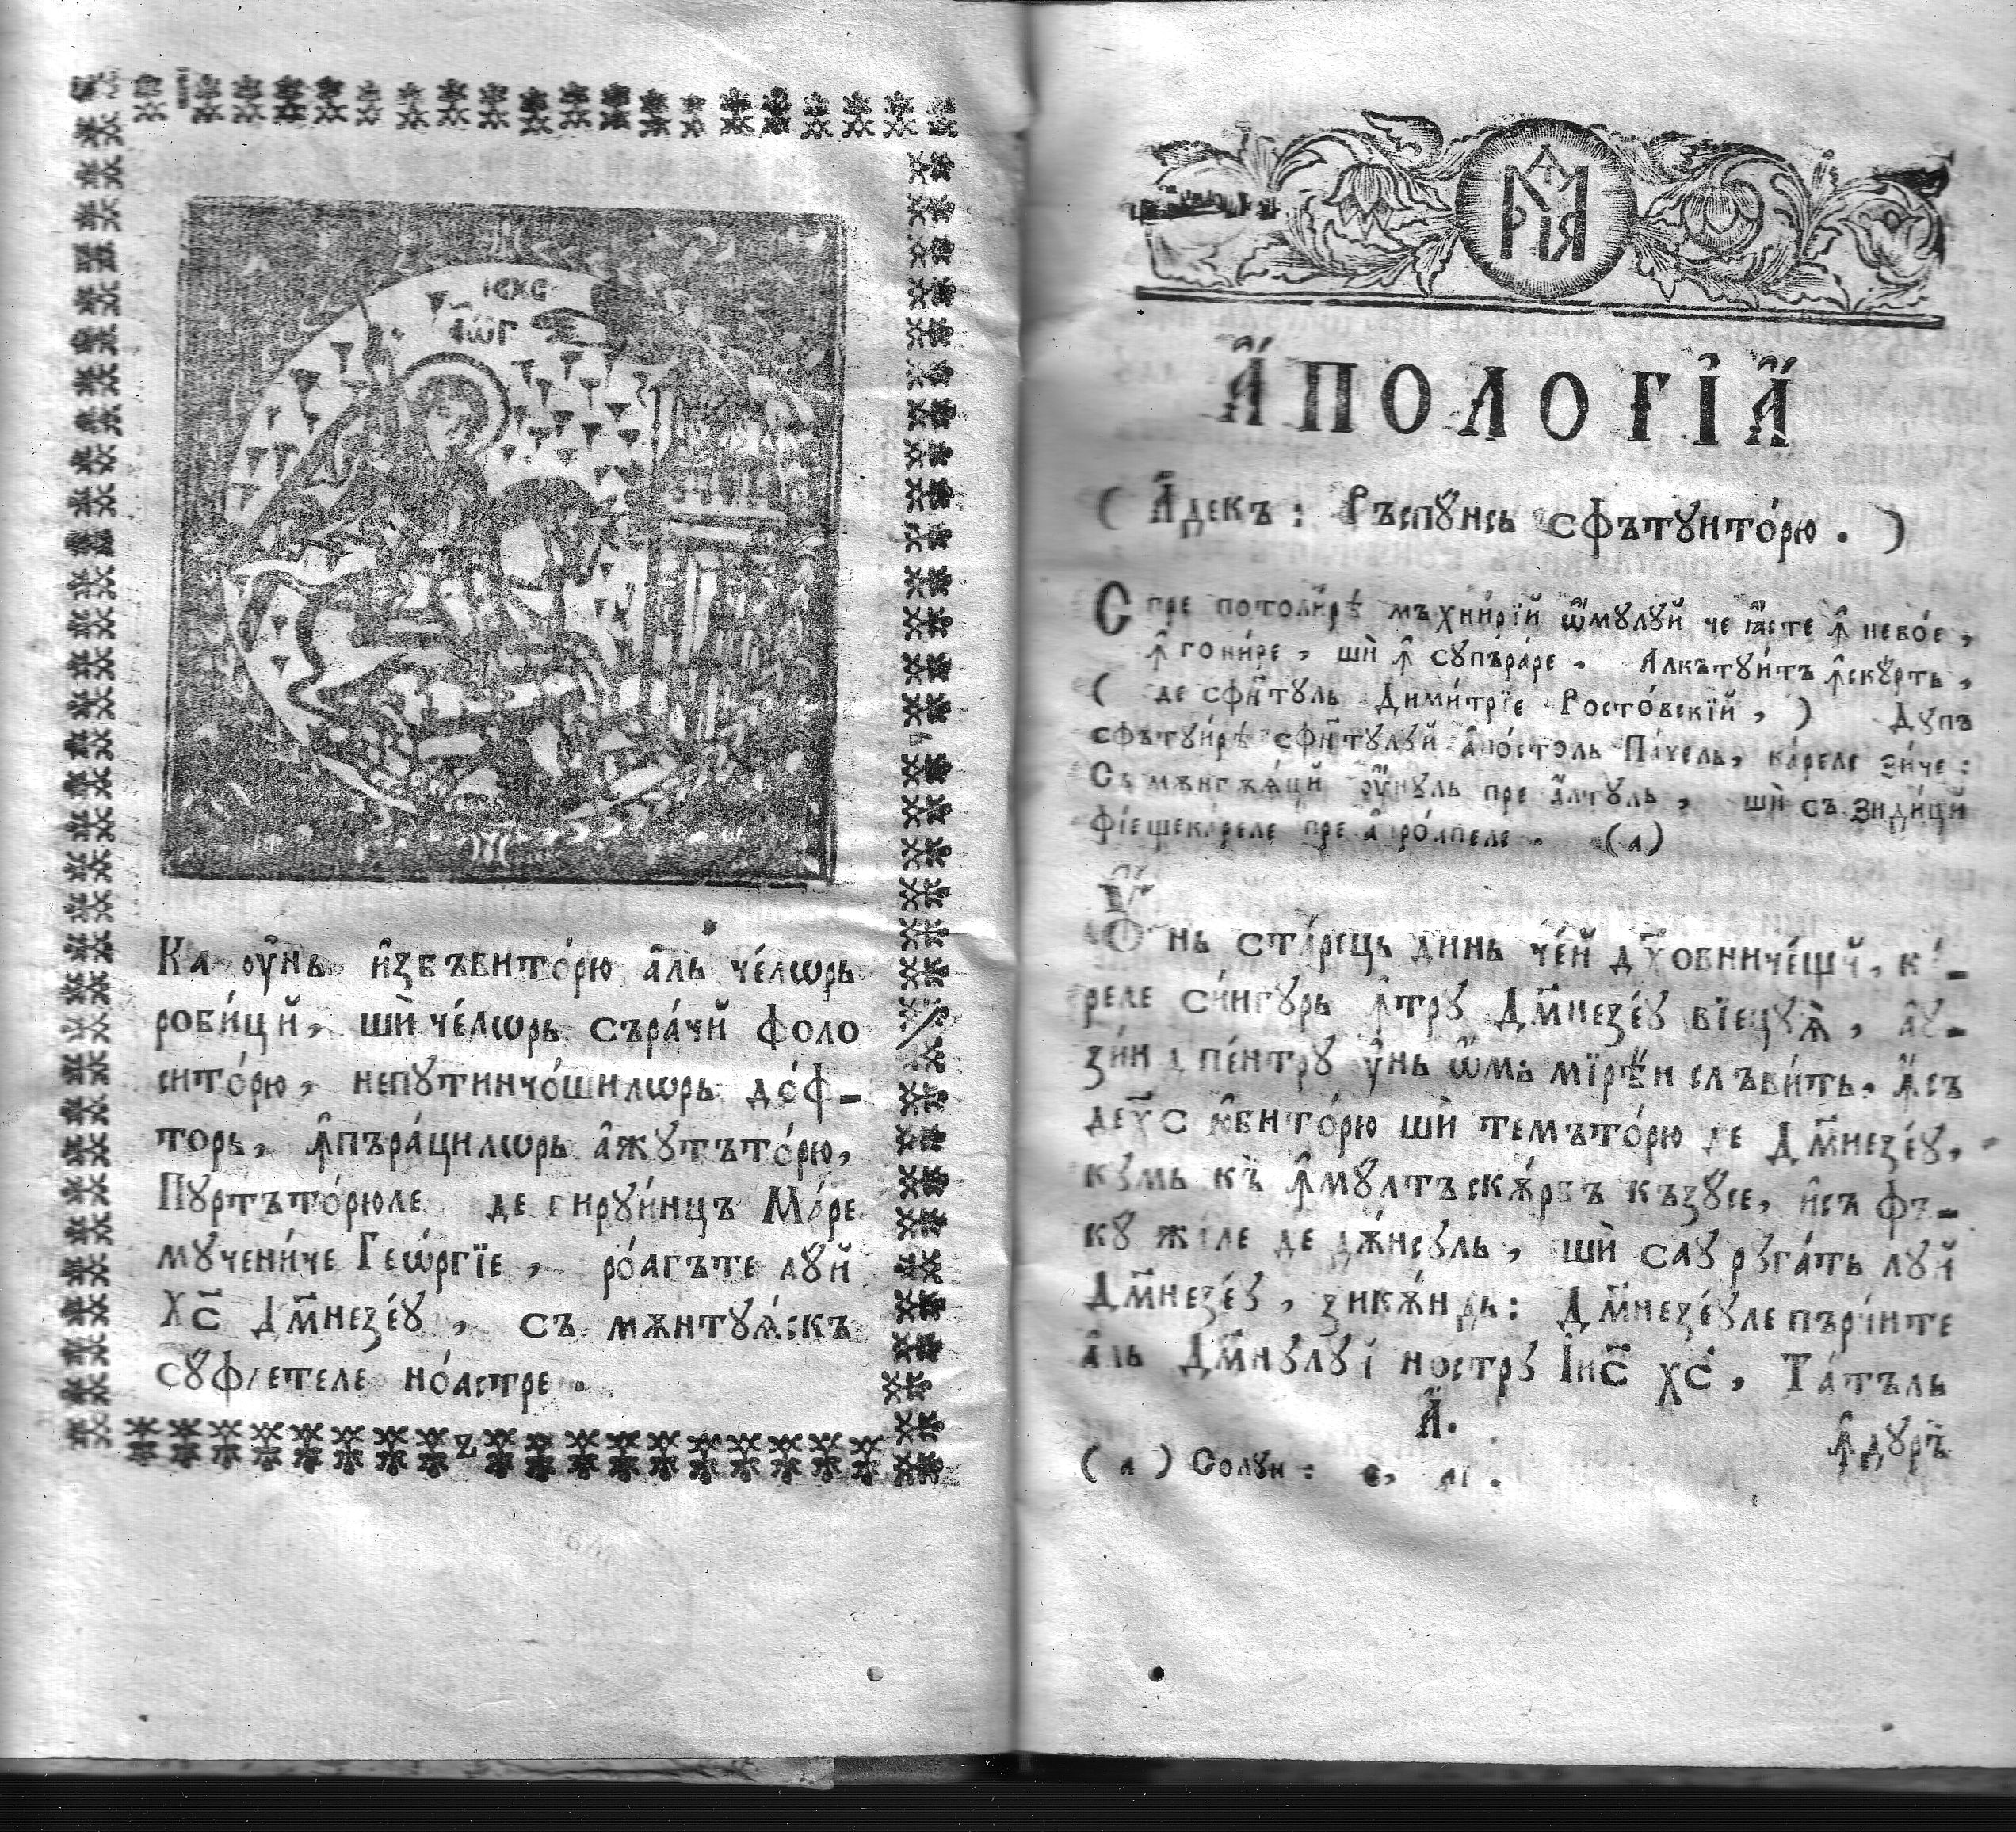 ІСХС
Ка оу҆нь и҆збъвито́рю а҆ль че́лωрь
роби́цй, шѝ че́лωрь съра́чй фоло
сито́рю, непутинчо́шилωрь до́ф-
торь, ꙟ҆пъра́цилωрь а҆жутъто́рю,
Пуртъто́рюле де бируи́нцъ Ма́ре
мучени́че Гео́ргїе, ро́агъте луй
Хс҃ Дм҃незе́у, съ мѫнтуѧ́скъ
су́флетеле но́астре.
МРІЯ
А҆ПОЛОГІѦ
( А҆декъ: Ръспу́нсь сфътуито́рю. )
Спре потоли́рѣ мъхни́рїй ѡ҆мулуй че ꙗ҆сте ꙟ҆ нево́е,
ꙟ҆ гони́ре, шѝ ꙟ҆ супъра́ре. Алкътуи́тъ ꙟ҆ску́рть,
( де сфн҃туль Дими́трїе Росто́вскїй, ) Дупъ
сфътуи́рѣ сфн҃тулуй а҆по́столь Па́вель, ка́реле зи́че:
Съ мѫнгъѧ́цй оу҆нуль пре а҆лтуль, шѝ съ зиди́цй
фїещека́реле пре а҆про́апеле. (а)
Оу҆нь ста́рець динь че́й дх҃овниче́щй, ка́-
реле си́нгурь ꙟ҆тру Дм҃незе́у вїецуѧ̀, а҆у-
зи́нд пе́нтру у҆нь ѡ҆мь мїрѣ́н слъви́ть, ꙟ҆съ
деу҃с ю҆бито́рю шѝ темъто́рю де Дм҃незе́у,
кумь къ ꙟ҆му́лтъ скѫ́рбъ къзу́се, и҆съ фъ-
ку жа́ле де дѫ́нсуль, шѝ сау руга́ть луй
Дм҃незе́у, зикѫ́ндь: Дм҃незе́уле пъри́нте
а҆ль Дм҃нулуі ностру І҆ис҃ хс҃, Та́тъль
А҆.
ꙟ҆дуръ̀
( а ) Солун: є, аі.